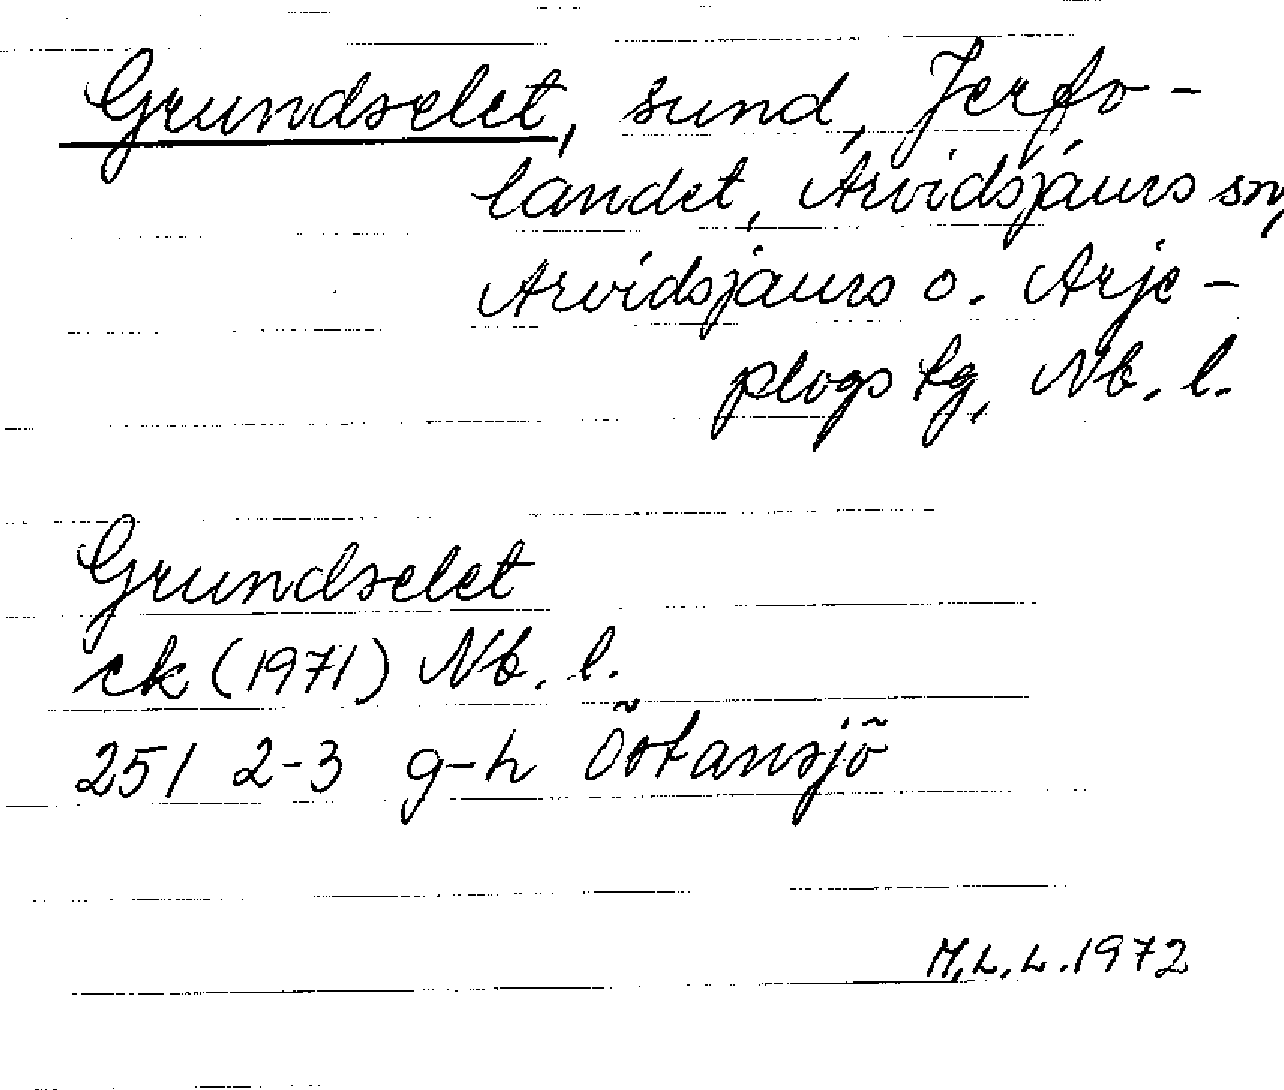 Grundselet, sund, Jerfo-
landet, Arvidsjaurs sn,
Arvidsjaurs o. Arje-
plogs tg, Nb. l.
Grundselet
ek (1971) Nb. l.
251 2-3 g-h Östansjö
M.L.L. 1972